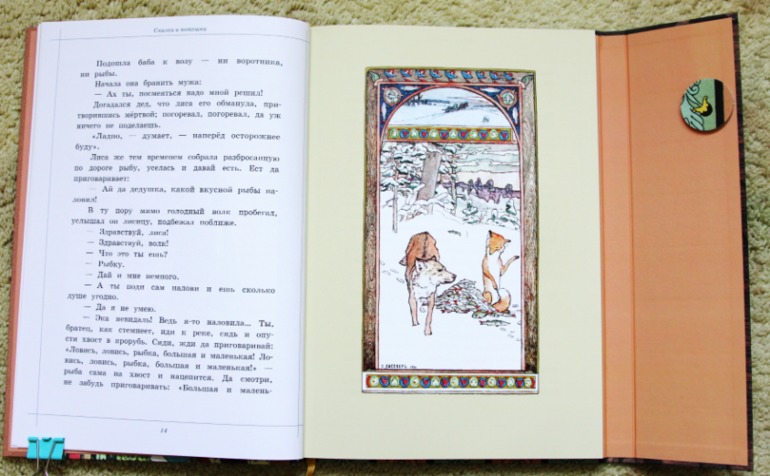 Сказка в немецком
Подошла баба к возу — ни воротника,
ни рыбы.
Начала она бранить мужа:
— Ах ты, посмеяться надо мной решил!
Догадался дед, что лиса его обманула, при-
творившись мёртвой; погоревал, погоревал, да уж
ничего не поделаешь.
«Ладно, — думает, — наперёд осторожнее
буду».
Лиса же тем временем собрала разбросанную
по дороге рыбу, уселась и давай есть. Ест да
приговаривает:
— Ай да дедушка, какой вкусной рыбы на-
ловил!
В ту пору мимо голодный волк пробегал,
услышал он лисицу, подбежал поближе.
— Здравствуй, лиса!
— Здравствуй, волк!
— Что это ты ешь?
— Рыбку.
— Дай и мне немного.
— А ты поди сам налови и ешь сколько
душе угодно.
— Да я не умею.
— Эка невидаль! Ведь я-то наловила... Ты,
братец, как стемнеет, иди к реке, сядь и опу-
сти хвост в прорубь. Сиди, жди да приговаривай:
«Ловись, ловись, рыбка, большая и маленькая! Ло-
вись, ловись, рыбка, большая и маленькая!» —
рыба сама на хвост и нацепится. Да смотри,
не забудь приговаривать: «Большая и малень-
14